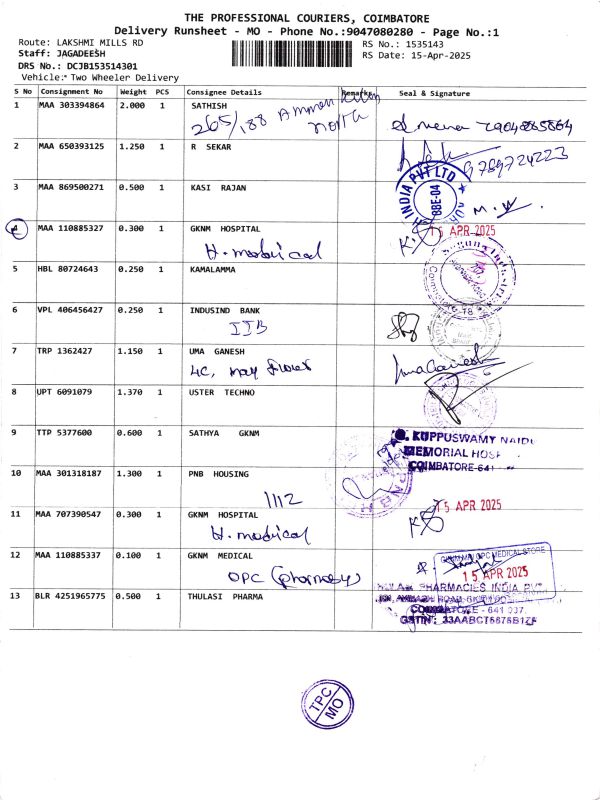 THE PROFESSIONAL COURIERS, COIMBATORE
Delivery Runsheet - MO - Phone No.:9047080280 - Page No.:1
Route: LAKSHMI MILLS RD
RS No.: 1535143
Staff: JAGADEESH
RS Date: 15-Apr-2025
DRS No.: DCJB153514301
Vehicle:* Two Wheeler Delivery
S No Consignment No Weight PCS Consignee Details Remarks Seal & Signature
1 MAA 303394864 2.000 1 SATHISH
265/188 Amman
North
2 MAA 650393125 1.250 1 R SEKAR
9789724223
3 MAA 869500271 0.500 1 KASI RAJAN
INDIA PVT LTD
M.W.
4 MAA 110885327 0.300 1 GKNM HOSPITAL
15 APR 2025
H. medical
5 HBL 80724643 0.250 1 KAMALAMMA
6 VPL 406456427 0.250 1 INDUSIND BANK
IIB
7 TRP 1362427 1.150 1 UMA GANESH
4C, may flower
UmaGanesh
8 UPT 6091079 1.370 1 USTER TECHNO
9 TTP 5377600 0.600 1 SATHYA GKNM
G. KUPPUSWAMY NAIDU
MEMORIAL HOSP
COIMBATORE-641
10 MAA 301318187 1.300 1 PNB HOUSING
1112
11 MAA 707390547 0.300 1 GKNM HOSPITAL
15 APR 2025
H. medical
12 MAA 110885337 0.100 1 GKNM MEDICAL
OPC (pharmacy)
OPC MEDICAL STORE
15 APR 2025
13 BLR 4251965775 0.500 1 THULASI PHARMA
PHARMACIES INDIA PVT
COIMBATORE - 641 037.
TPC
MO